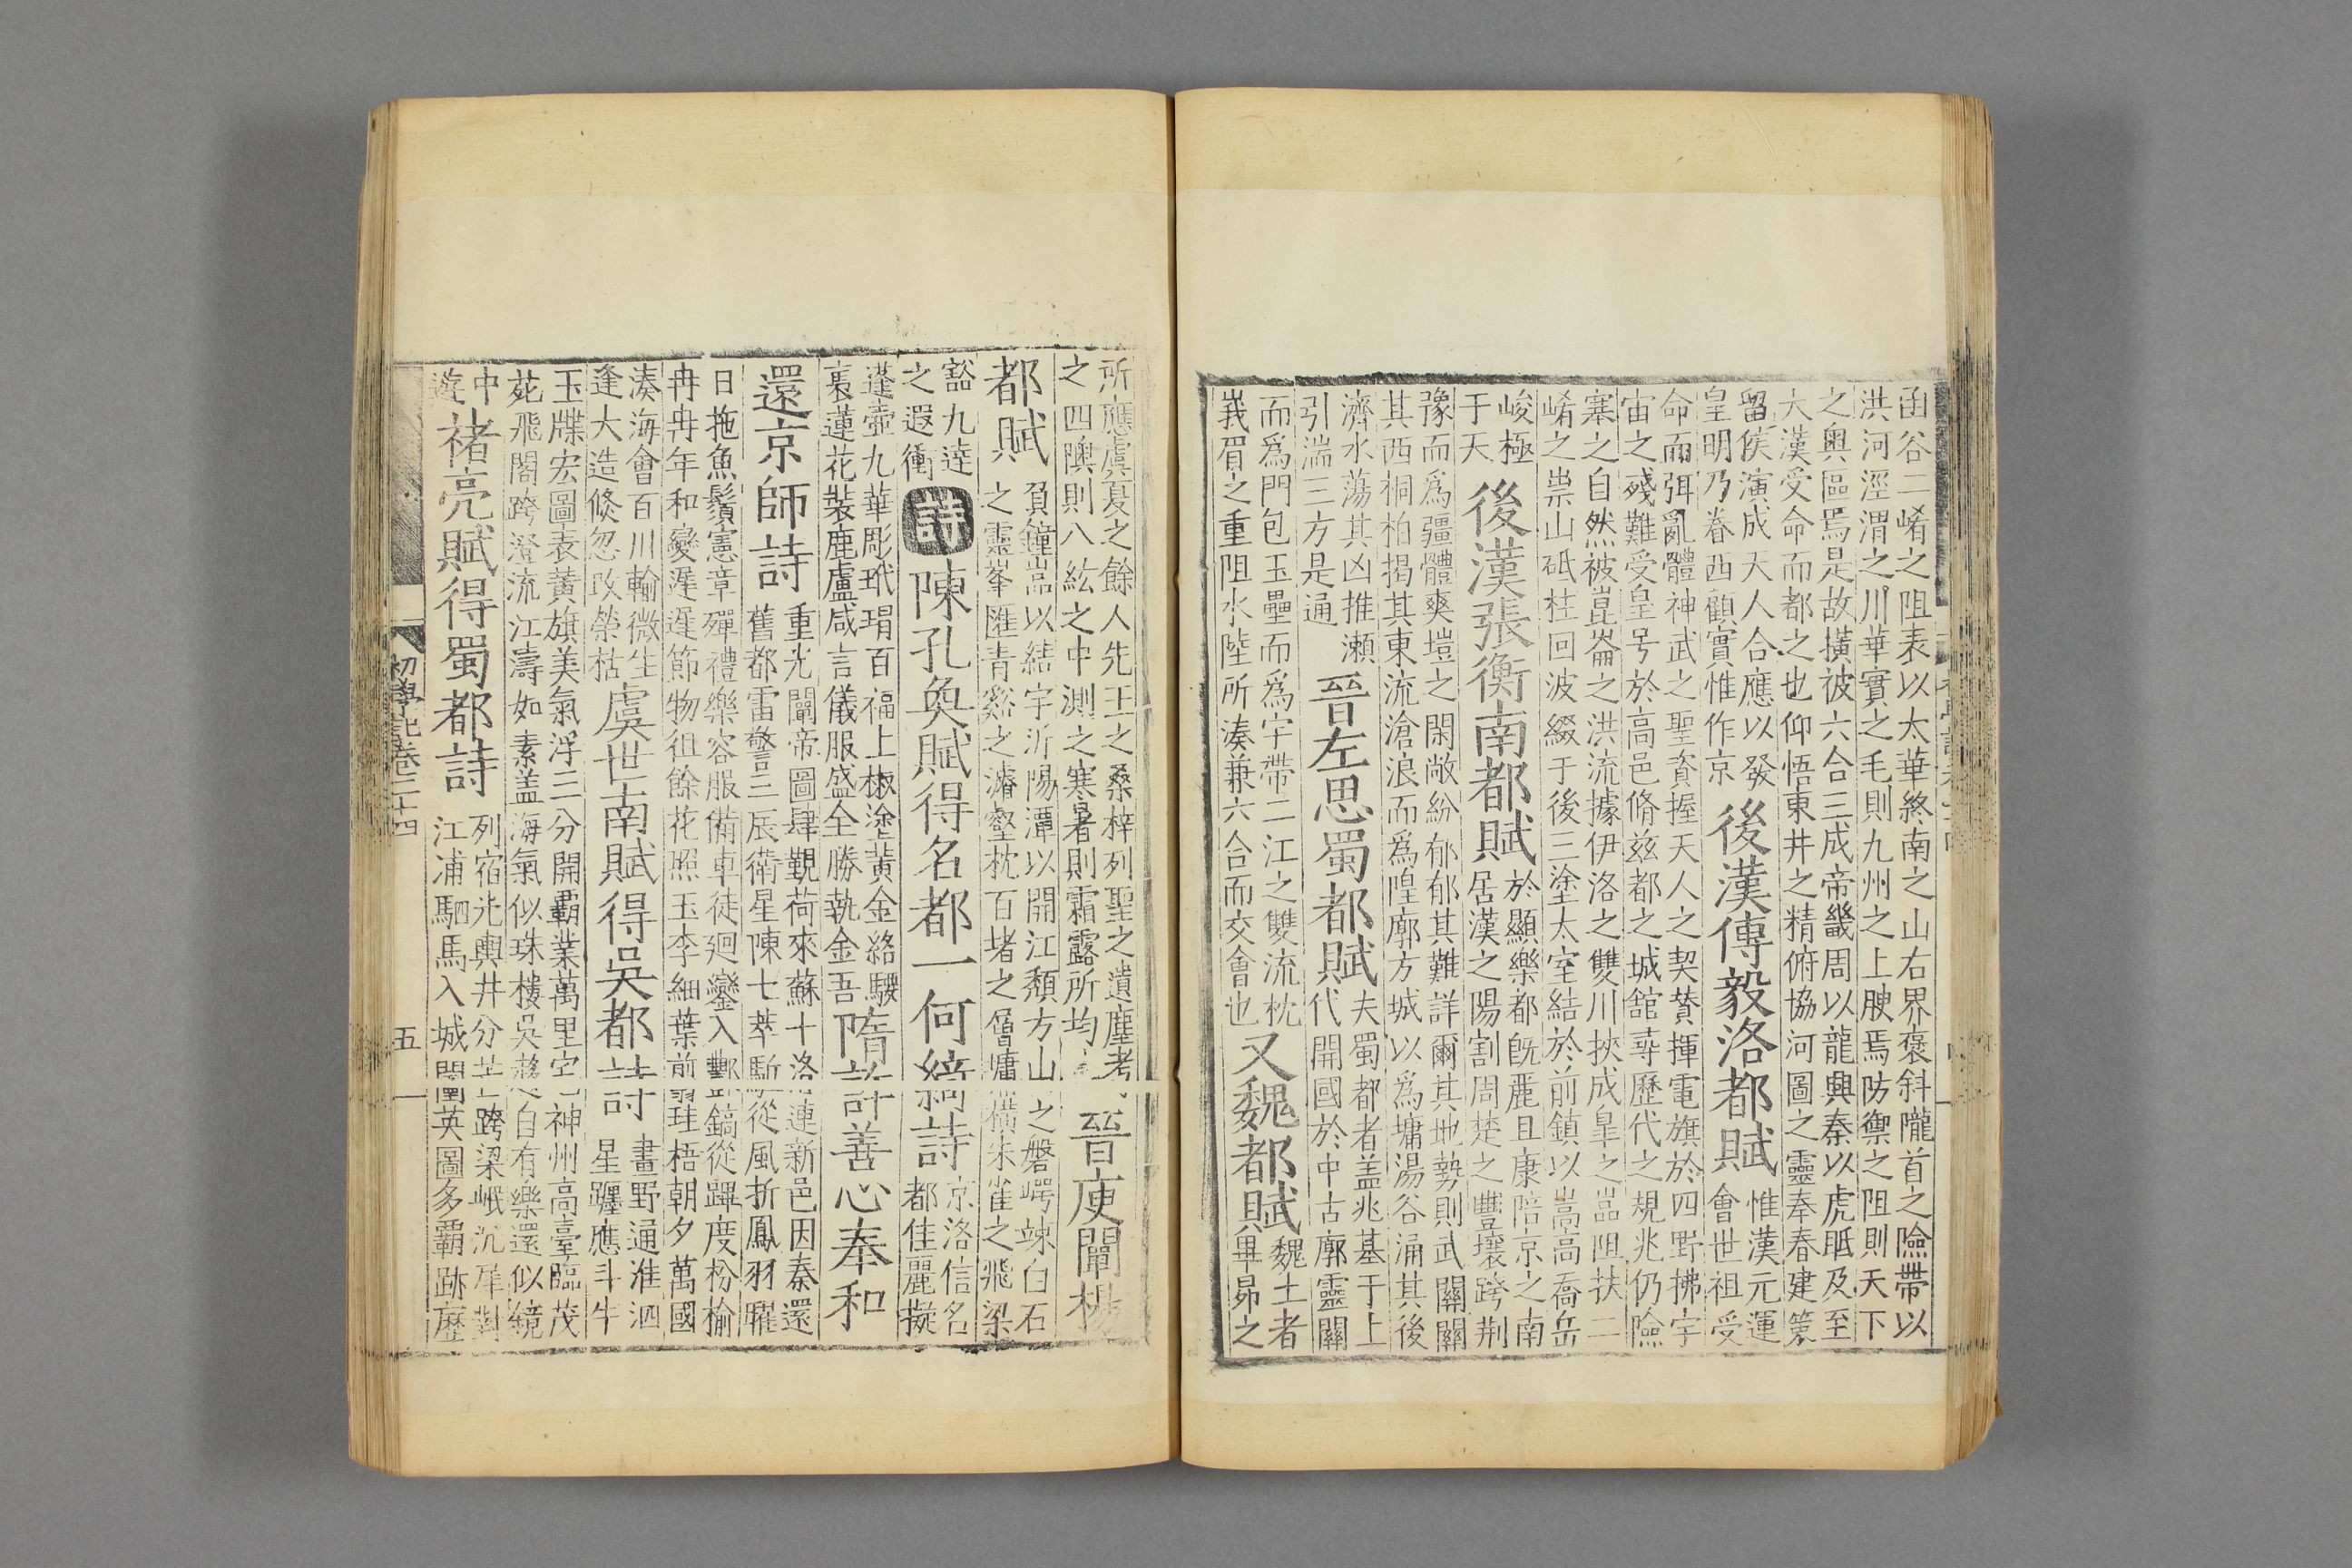 函谷二崤之阻表以太華終南之山右界褒斜隴首之險帶以
洪河涇渭之川華實之毛則九州之上腴焉防禦之阻則天下
之奧區焉是故橫被六合三成帝畿周以龍興秦以虎眡及至
大漢受命而都之也仰悟東井之精俯協河圖之靈奉春建策
留侯演成天人合應以發
皇明乃眷西顧實惟作京
後漢傅毅洛都賦
惟漢元運
會世祖受
命而弭亂體神武之聖資握天人之契贊揮電旗於四野拂宇
宙之殘難受皇号於高邑脩兹都之城舘尋歷代之規兆仍險
塞之自然被崑崙之洪流據伊洛之雙川挾成皐之嵒阻扶二
崤之崇山砥柱回波綴于後三塗太室結於前鎮以嵩高喬岳
峻極
于天
後漢張衡南都賦
於顯樂都旣麗且康陪京之南
居漢之陽割周楚之豐壤跨荆
豫而爲疆體爽塏之閑敞紛郁郁其難詳爾其地勢則武關關
其西桐柏揭其東流滄浪而爲隍廓方城以爲墉湯谷涌其後
濟水蕩其凶推瀬
引湍三方是通
晉左思蜀都賦
夫蜀都者盖兆基于上
代開國於中古廓靈關
而爲門包玉壘而爲宇帶二江之雙流枕
峩眉之重阻水陸所湊兼六合而交會也
又魏都賦
魏土者
畢昴之
所應虞夏之餘人先王之桑梓列聖之遺塵考
之四隩則八紘之中測之寒暑則霜露所均
晉庾闡楊
都賦
負鐘嵒以結宇沂陽潭以開江頽方山之磐崿竦白石
之靈峯匯青谿之濬壑枕百堵之層墉橫朱雀之飛梁
豁九逵
之遐衝
詩
陳孔奐賦得名都一何綺詩
京洛信名
都佳麗擬
蓬壺九華彫玳瑁百福上椒塗黄金絡騕
裹蓮花裝鹿盧咸言儀服盛全勝執金吾
隋許善心奉和
還京師詩
重光闡帝圖肆覲荷來蘇十洛連新邑因秦還
舊都雷警三辰衛星陳七萃駈從風折鳳羽曜
日拖魚鬚憲章殫禮樂容服備車徒廻鑾入酆鎬從蹕度枌榆
冉冉年和變遲遲節物徂餘花照玉李細葉翦珪梧朝夕萬國
湊海會百川輸微生
逢大造倏忽改榮枯
虞世南賦得吳都詩
畫野通淮泗
星躔應斗牛
玉牒宏圖表黄旗美氣浮三分開霸業萬里宅神州高臺臨茂
苑飛閣跨澄流江濤如素盖海氣似珠樓吳趨自有樂還似鏡
中
遊
禇亮賦得蜀都詩
列宿光輿井分芒跨梁岷沉犀對
江浦駟馬入城闉英圖多霸跡歷
初學記卷二十四
五